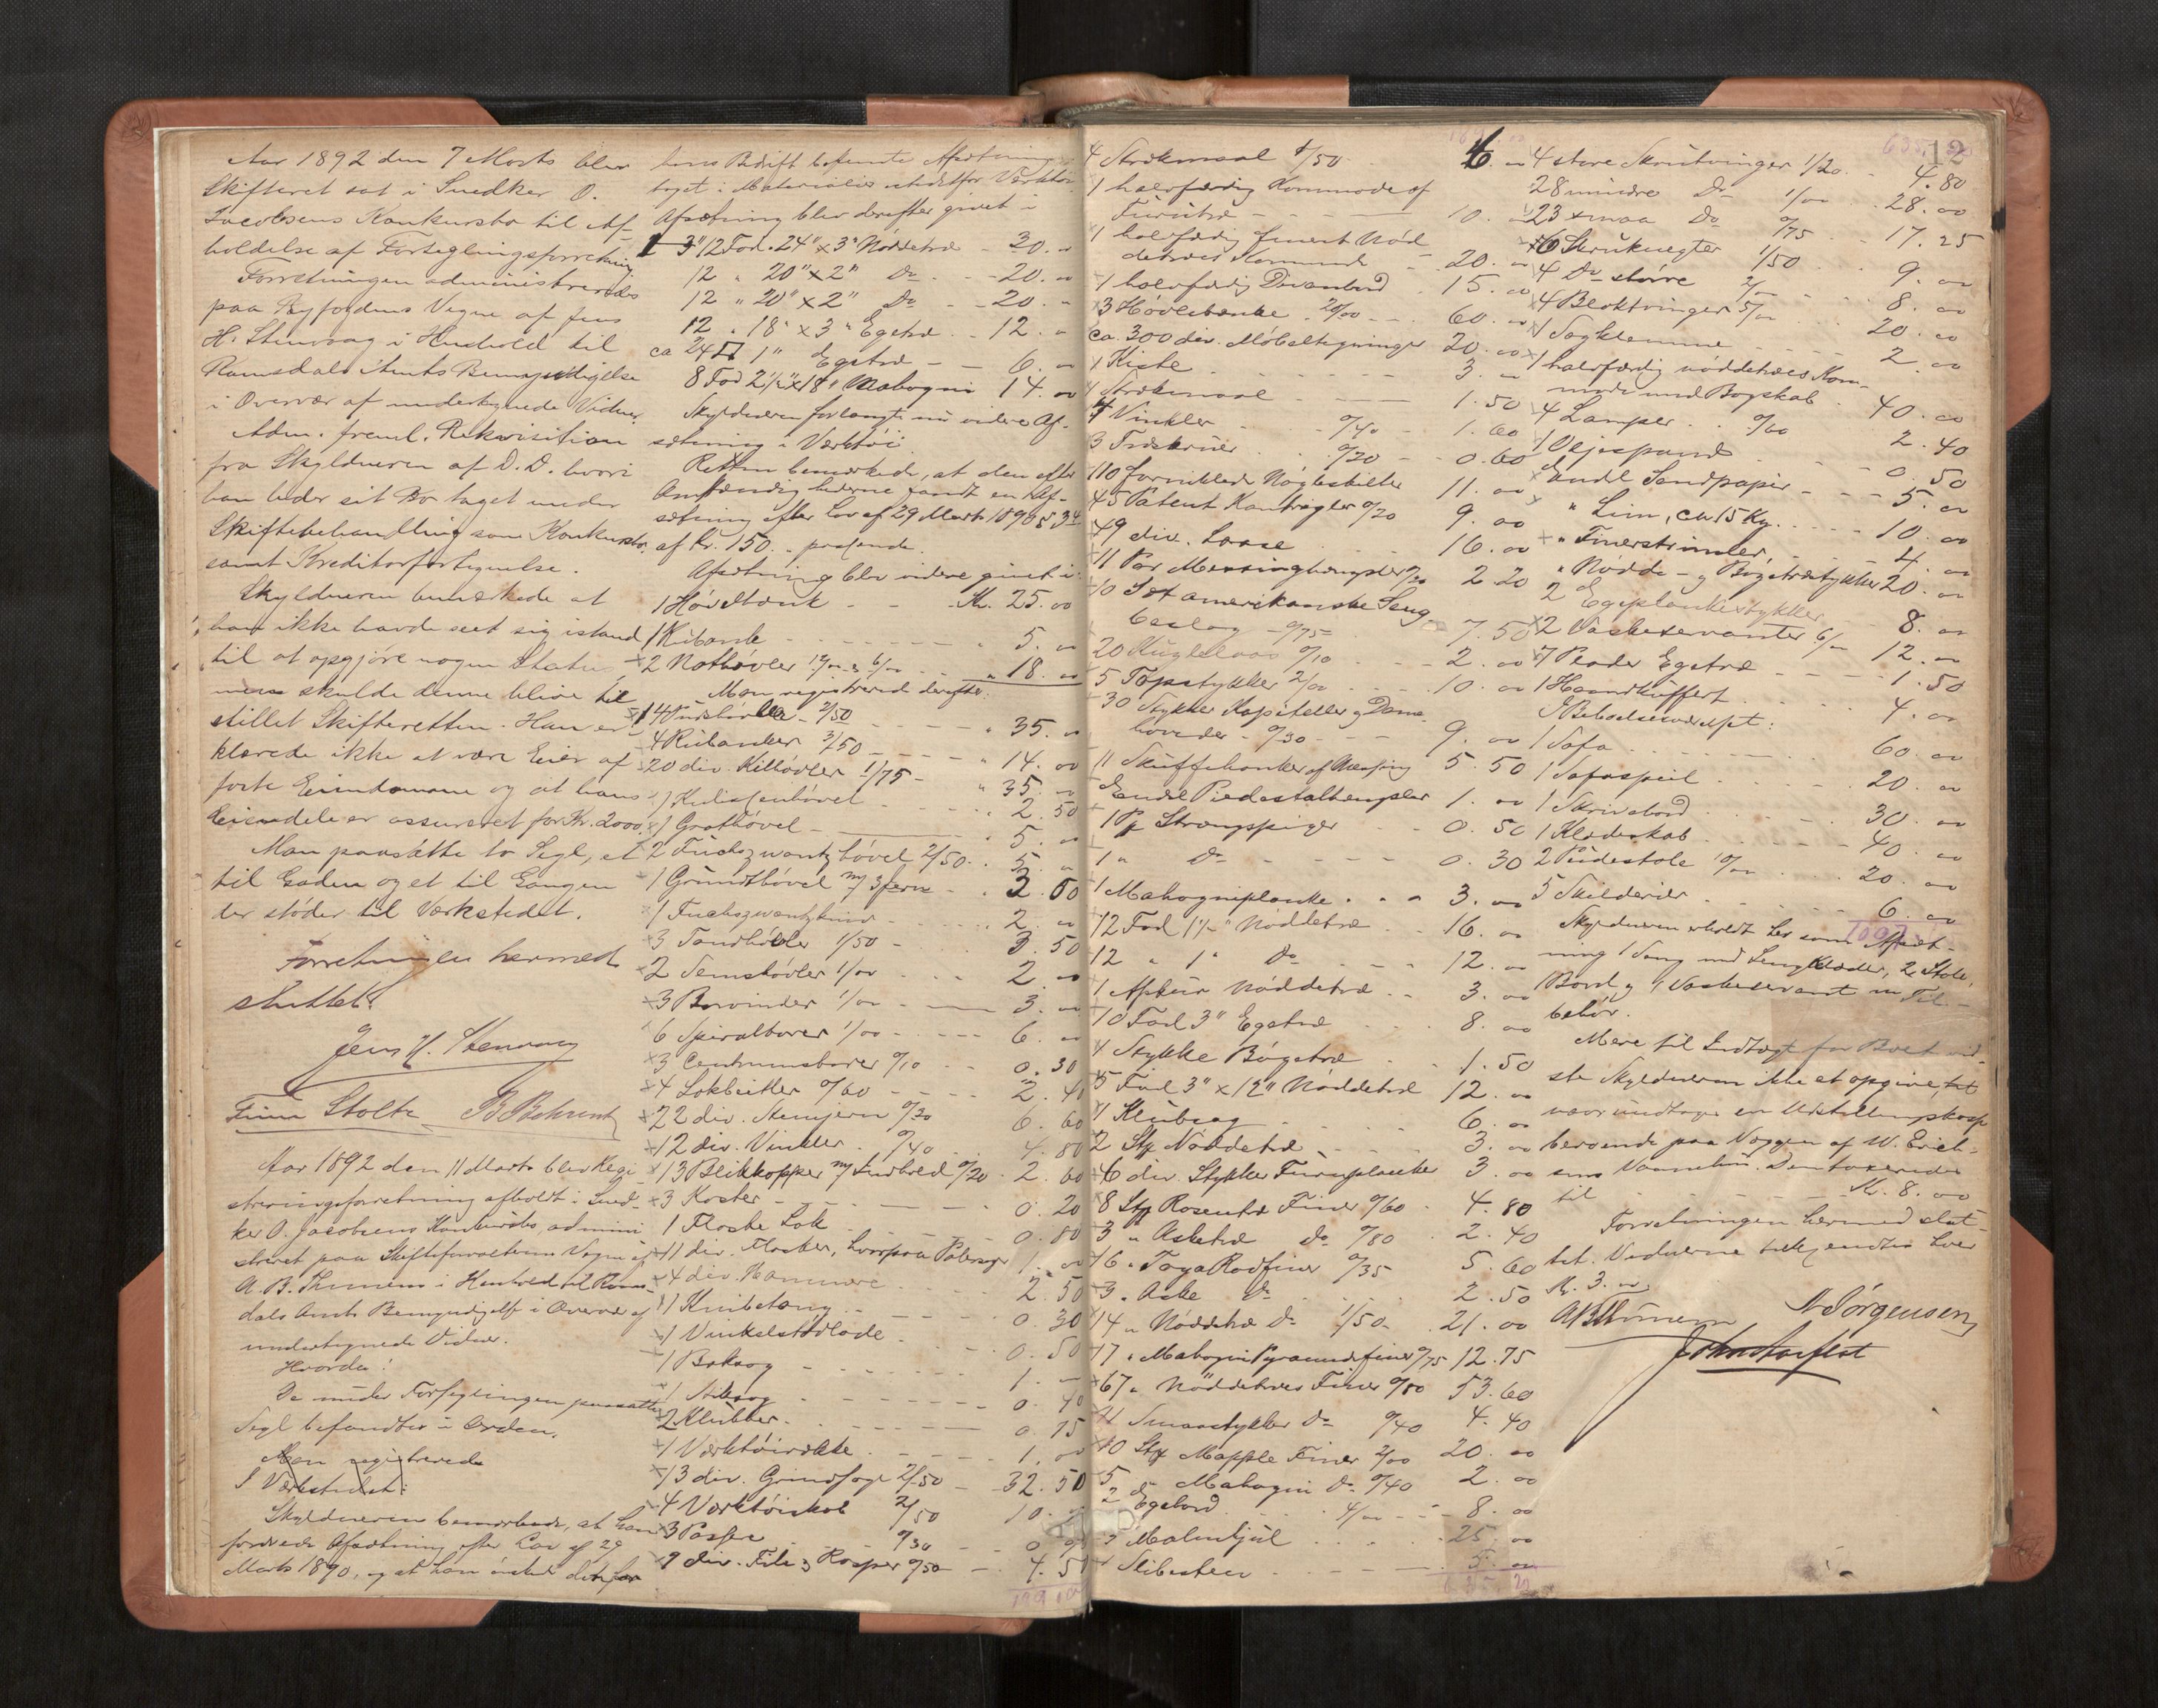 Aar 1892 den 7 Marts blev
Skifteret sat i Snedker O.
Jacobsens Konkursbo til Af-
holdelse af Forseglingsforretning
Forretningen administreredes
paa Byfogdens Vegne af Jens
H. Stenvaag i Henhold til
Romsdals Amts Bemyndigelse
i Overvær af undertegnede Vidner.
Adm. freml. Rekvisition
fra Skyldneren af D. D. hvori
han beder sit Bo taget under
Skiftebehandling som Konkursbo,
samt Kreditorfortegnelse.
Skyldneren bemærkede at
han ikke havde seet sig istand
til at opgjöre nogen Status,
men skulde denne blive til-
stillet Skifteretten. Han er-
klærede ikke at være Eier af
faste Eiendomme og at hans
Eiendele er assureret for Kr. 2000.
Man paasatte to Segl, et
til Gaden og et til Gangen
der stöder til Værkstedet.
Forretningen hermed
sluttet.
Jens H. Stenvaag
Stolts B Behrent
Aar 1892 den 11 Marts blev Regi-
streringsforretning afholdt i Sned-
ker O. Jacobsens Konkursbo, admini-
streret paa Skifteforvalterens Vegne af
A. B. i Henhold til Roms-
dals Amts Bemyndigelse i Overvær af
undertegnede Vidner.
Hvorda:
De under Forseglingen paasatte
Segl befandtes i Orden.
Man registrerede
I Værkstedet:
Skyldneren bemærkede, at han
fordrede Afsætning efter Lov af 29
Marts 1890, og at han önsket den for
hans Bedrift Afsætning
taget i Materialier istedetfor Værktöi
Afsætning blev derefter givet i
12 Fod 24" x 3" Nöddetræ - 30. 00
12 " 20" x 2" Do - 20. 00
12 " 20" x 2" Do - 20. "
12 " 18" x 3" Egetræ - 12. "
ca 24 □ 1" Egetræ - 6. "
8 Fod 2½" x 18" Mahogni 14. 00
Skyldneren forlangte nu videre Af-
sætning i Værktöi.
Retten bemærkede, at den efter
Omstændighederne fandt en Af-
sætning efter Lov af 29 Marts 1890 § 34
af Kr. 150. - passende.
Afsætning blev videre givet i:
1 Hövelbænk - Kr. 25. 00
1 Rubank - 5. 00
2 Nothövler 12/00 & 6/00 - 18. 00
Man registrerede derefter:
14 2/50 - 35. 00
4 Rubanker 3/50 - 14. 00
20 div. Kelhövler 1/75 - 35. 00
1 Kulissenhövel - 2. 50
1 Grathövel - 5. 00
2 Fuchszwantzhövel 2/50 - 5. 00
1 Grundthövel m/ 3 Jern - 2. 50
1 Fuchszwantz - 2. 00
3 Tandhövler 1/50 - 3. 50
2 Simshövler 1/00 - 2. 00
3 Borvinder 1/00 - 3. 00
6 Spiralborer 1/00 - 6. 00
3 Centrumsborer 0/10 - 0. 30
4 Lokbeitler 0/60 - 2. 40
22 div. Stemjern 0/30 - 6. 60
12 div. Vinkler 0/40 - 4. 80
13 Blikkopper m/ 0/20 - 2. 60
3 Koster - 0. 20
1 Flaske Lak - 0. 80
11 div. Flasker, hvorpaa 1. 00
4 div. Hammere 2. 50
1 Knibetang - 0. 30
1 - 0. 50
1 Baksag - 1. -
1 Stiksag - 0. 40
2 Klubber - 0. 75
1 Værktöirække - 1. 00
13 div. Grindsage 2/50 - 32. 50
4 Værktöiskab 2/50 10.
3 Passere 0/30 - 0
9 div. File & Rasper 0/50 - 4. 5
4 Strekmaal 1/50 6. "
1 halvfærdig Kommode af
Furutræ - 10. "
1 halvfærdig fineret Nöd-
detræs Kommode - 20. "
1 halvfærdig Divanbord 15. 00
3 Hövlebænke 20/00 - 60. "
ca. 300 div. Möbeltegninger 20. 00
1 Kiste - 3. "
4 Strekmaal - 1. 50
4 Vinkler 0/40 - 1. 60
3 Træskruer 0/20 - 0. 60
110 fornikklede Nögleskilter 11. 00
45 Patent Kantregler 0/20 9. 00
49 div. Laase - 16. 00
11 Par Messinghængsler 0/20 2. 20
10 Sæt amerikanske Seng-
beslag 0/75 - 7. 50
20 Kuglelaas 0/10 - 2. 00
5 Topstykker 2/00 - 10. 00
30 Stykker Kapiteller og Dame-
hoveder 0/30 - 9. 00
11 Skuffehanker af Messing 5. 50
Endel Piedestalhængsler 1. 00
1 Pk Strængspiger - 0. 50
1 " Do - 0. 30
1 Mahogniplanke - 3. 00
12 Fod 1½" Nöddetræ 16. 00
12 " 1" Do - 12. 00
1 Afskur Nöddetræ - 3. 00
10 Fod 3" Egetræ - 8. 00
4 Stykke Bögetræ - 1. 50
5 Fod 3" x 12" Nöddetræ 12. 00
1 Klubsag - 6. 00
2 Stk Nöddetræ - 3. 00
6 div. Stykker Furuplanker 3. 00
8 Stk Rosentræ Finer 0/60 4. 80
3 " Asketræ Do 0/80 2. 40
16 " Toya Rodfiner 0/35 5. 60
3 " Aske Do 2. 50
14 " Nöddetræ Do 1/50 21. 00
17 " Mahogni Pyramidefiner 0/75 12. 75
67 " Nöddetræs Finer 0/80 53. 60
11 Smaastykker Do 0/40 4. 40
10 Stk Mapple Finer 2/00 20. 00
5 " Mahogni Do 0/40 2. 00
2 Egebord 4/00 - 8. 00
1 Malmhjul 25. 00
1 Slibesten - 5. 00
12
4 store Skrutvinger 1/20 4. 80
28 mindre Do 1/00 28. 00
23 smaa Do 0/75 17. 25
6 Skruknegter 1/50 9. 00
4 Do större 2/ 8. 00
4 Bloktvinger 5/00 20. 00
1 Sagklemme 2. 00
1 halvfærdig nöddetræs Kom-
mode med Bogskab - 40. 00
4 Lamper 0/60 2. 40
1 Oljespand 0. 50
Endel Sandpapir - 5. 00
" Lim, ca 15 Kg. - 10. 00
" Finerstrimler - 4. 00
" Nödde- og Bögetræstykker 20. 00
2 Egeplankestykker 8. 00
2 Vaskeservanter 6/00 12. 00
7 Plader Egetræ - 1. 50
1 Haandkuffert 4. 00
I Beboelsesværelset:
1 Sofa 60. 00
1 Sofaspeil 20. 00
1 Skrivebord 30. 00
1 Klædeskab 40. 00
2 Pudestole 10/00 20. 00
5 Skilderier 6. 00
Skyldneren erholdt her som Afsæt-
ning 1 Seng med Sengklæder, 2 Stole,
Bord og 1 Vaskeservant m Til-
behör.
Mere til Indtægt for Boet vid-
ste Skyldneren ikke at opgive, det
være undtagen en Udstillingskasse
beroende paa Væggen af W. Erich-
sens Den taxeredes
til - Kr. 8. 00
Forretningen hermed slut-
tet. Vidnerne tilkjendtes hver
Kr. 3. 00
N Sörgensen